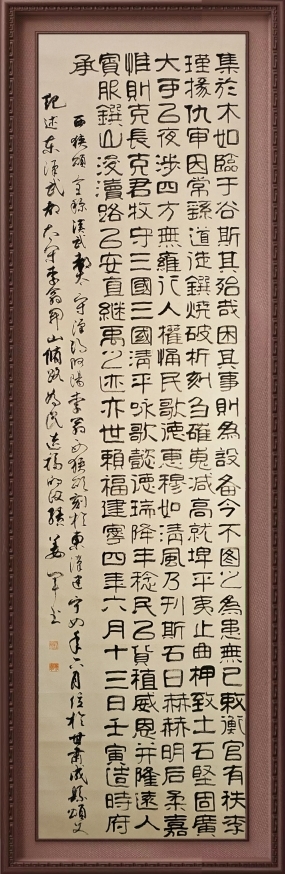 集於木如臨于谷斯其殆哉困其事則為設备今不图之為患無已敕衡官有秩李
瑾掾仇审因常繇道徒鐉燒破析刻臽確嵬减高就埤平夷正曲柙致土石堅固廣
大可㠯夜涉四方無雍行人懽悀民歌德惠穆如清風乃刊斯石曰赫赫明后柔嘉
惟則克長克君牧守三國三國清平咏歌懿德瑞降丰稔民㠯貨稙威恩并隆遠人
賓服鐉山浚瀆路㠯安直継禹之迹亦世賴福建寧四年六月十三日壬寅造時府
承
西狹頌全称漢武都太守漢陽阿陽李翕西狹頌刻於東漢建寧四年六月位於甘肅成縣頌文
記述東漢武都太守李翕開山修路為民造福的政績姜